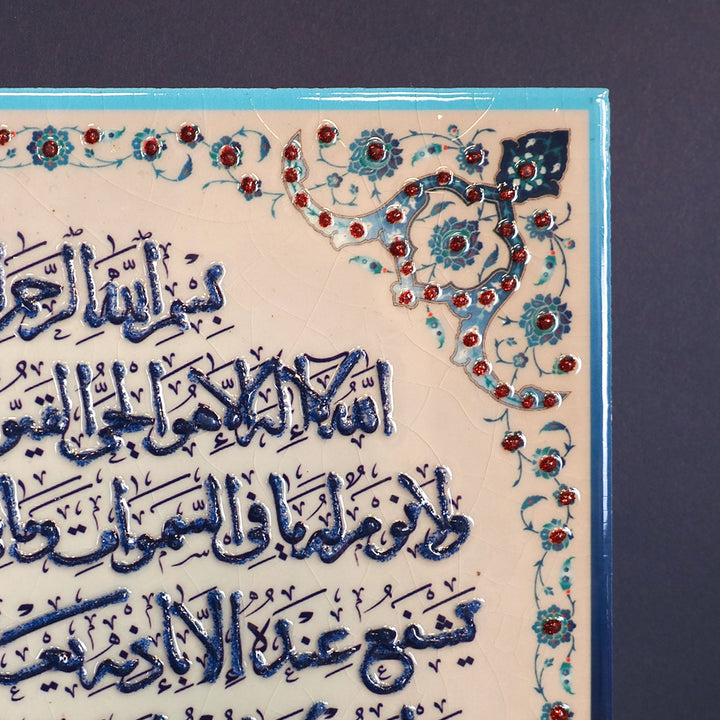 بِسْمِ اللّٰهِ الرَّحْمٰ
اللّٰهُ لَا إِلٰهَ إِلَّا هُوَ الْحَيُّ الْقَيُّو
وَلَا نَوْمٌ لَهُ مَا فِي السَّمٰوَاتِ وَمَا
يَشْفَعُ عِنْدَهُ إِلَّا بِإِذْنِهِ يَعْ